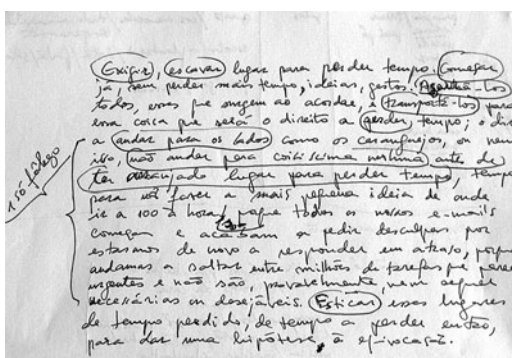 Exigir, escavar lugar para perder tempo. Começar
já, sem perder mais tempo, ideias, gestos. Agentá-los
todos, esses que surgem ao acordar, e transportá-los para
essa coisa que será o direito a perder tempo; o dir
a andar para os lados como os caranguejos, ou nem
isso, não andar para coisíssima nenhuma antes de
ter arranjado lugar para perder tempo, tempo
para não fazer a mais pequena ideia de onde
ir a 100 à hora, porque todos os nossos e-mails
começam e acabam a pedir desculpas por
estarmos de novo a responder em atraso, porque
andamos a saltar entre milhões de tarefas que parec
urgentes e não são, provavelmente, nem sequer
necessárias ou desejáveis. Esticar esses lugares
de tempo perdido, de tempo a perder então,
para dar uma hipótese à equivocação.
1 só fôlego